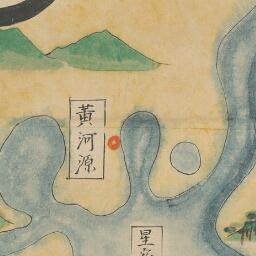 黃河源
星